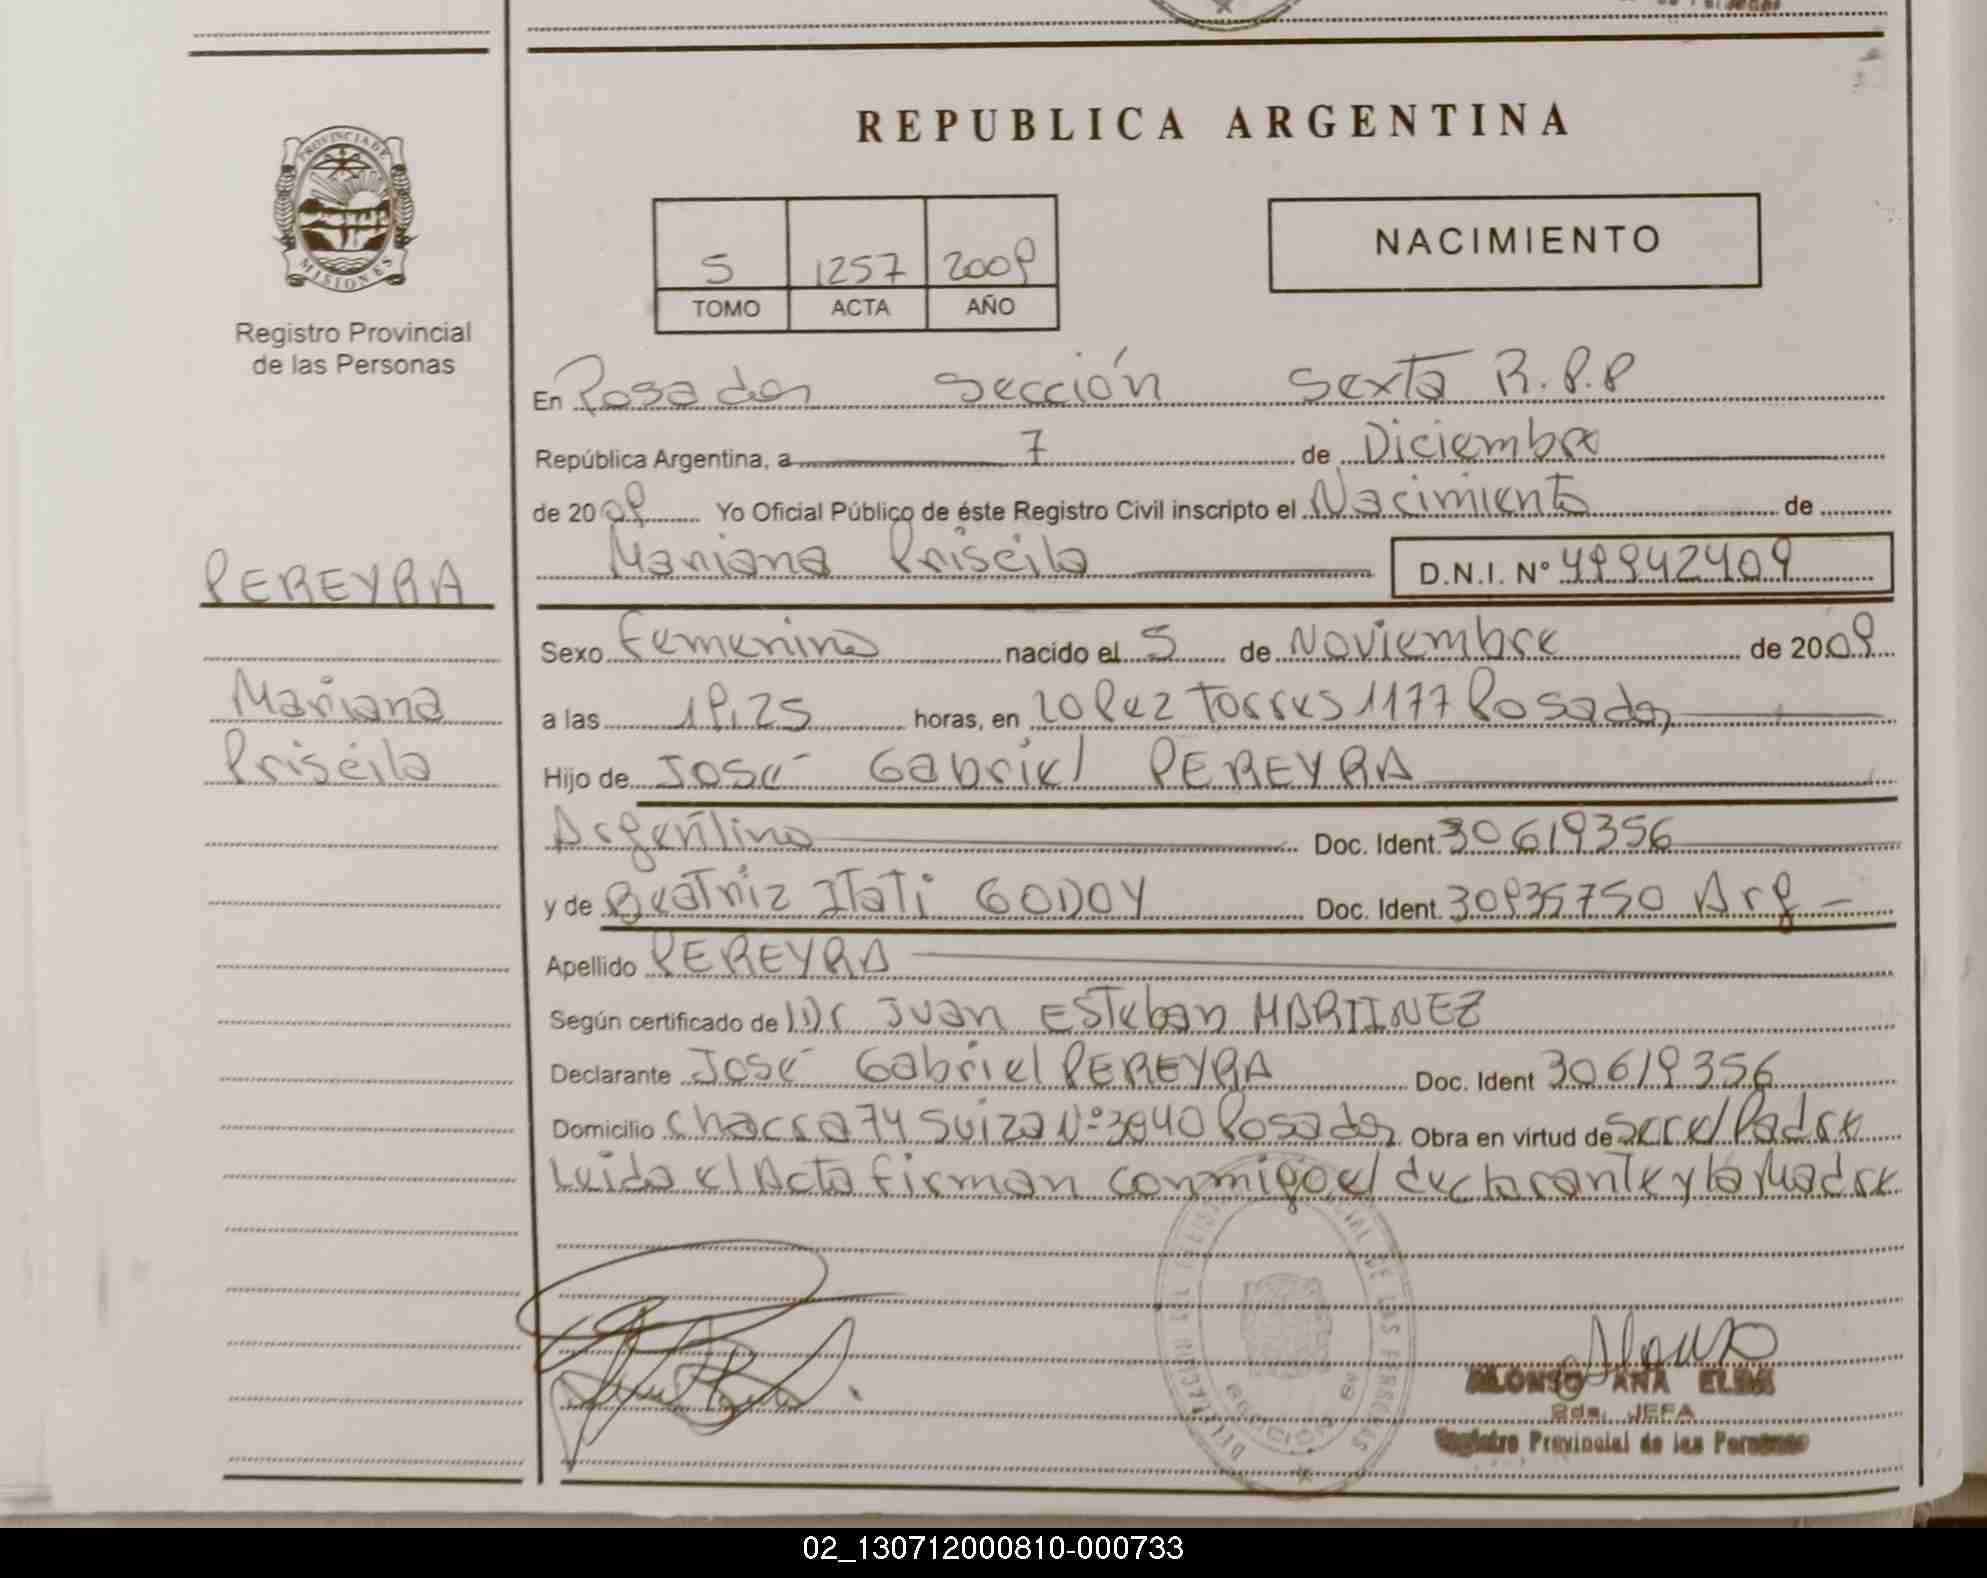 REPUBLICA ARGENTINA
PROVINCIA DE
MISIONES
Registro Provincial
de las Personas
5 1257 2009
TOMO ACTA AÑO
NACIMIENTO
En Posadas Sección Sexta R.P.P
República Argentina, a 7 de Diciembre
de 2009 Yo Oficial Público de éste Registro Civil inscripto el Nacimiento de
Mariana Priscila D.N.I. Nº 49942409
PEREYRA
Mariana
Priscila
Sexo Femenino nacido el 5 de Noviembre de 2009
a las 19,25 horas, en Lopez Torres 1177 Posadas
Hijo de José Gabriel PEREYRA
Argentino Doc. Ident. 30619356
y de Beatriz Itati GODOY Doc. Ident. 30935750 Arg -
Apellido PEREYRA
Según certificado de Dr Juan Esteban MARTINEZ
Declarante José Gabriel PEREYRA Doc. Ident 30619356
Domicilio Chacra 74 Suiza Nº Posadas Obra en virtud de Ser el Padre
Leida el Acta firman conmigo el declarante y la Madre
Alonso
ALONSO ANA ELBA
2da. JEFA
Registro Provincial de las Personas
02_130712000810-000733